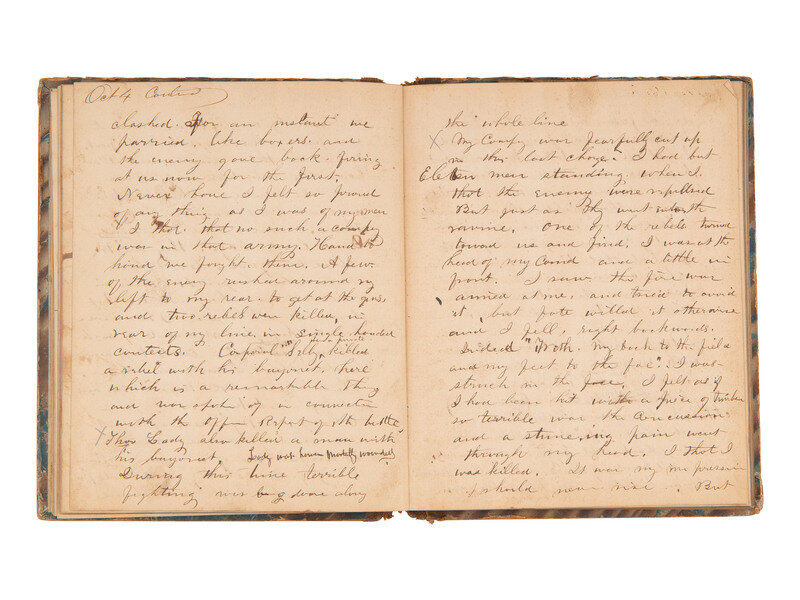 Oct 4 Contd
clashed. For an instant we
parried, like boxers and
the enemy gave back firing
at us now for the first.
Never have I felt so proud
of any thing as I was of my men
I thot that no such a company
was in that army. Hand to
hand we fought them. A few
of the enemy rushed around my
left to my rear to get at the guns,
and two rebels were killed, in
rear of my line, in single handed
contests. Corporal Selby killed
then a private
a rebel with his bayonet, there
which is a remarkable thing
and was spoke of in connection
with the off Report of the battle
X Thos Lady also killed a man with
his bayonet. Lady was here mortally wounded
During this time terrible
fighting was being done along
the whole line
X My Compy was fearfully cut up
in this last charge. I had but
Eleven men standing when I
that the enemy were repulsed
But just as they went into the
ravine, One of the rebels turned
toward us and fired, I was at the
head of my Comd and a little in
front. I saw the fire was
aimed at me, and tried to avoid
it, but fate willed it otherwise
and I fell, right backwards.
Indeed "With my back to the field
and my feet to the foe". I was
struck in the face. I felt as if
I had been hit with a piece of timber
so terrible was the concussion
and a stunning pain went
through my head. I thot I
was killed. It was my impression
I should never rise. But